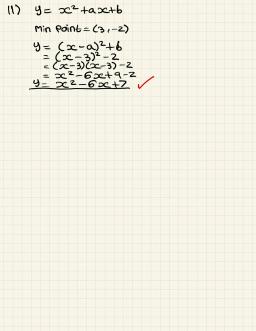 11) y = x² + ax + b
Min Point = (3, -2)
y = (x - a)² + b
= (x - 3)² - 2
= (x - 3)(x - 3) - 2
= x² - 6x + 9 - 2
y = x² - 6x + 7 ✓